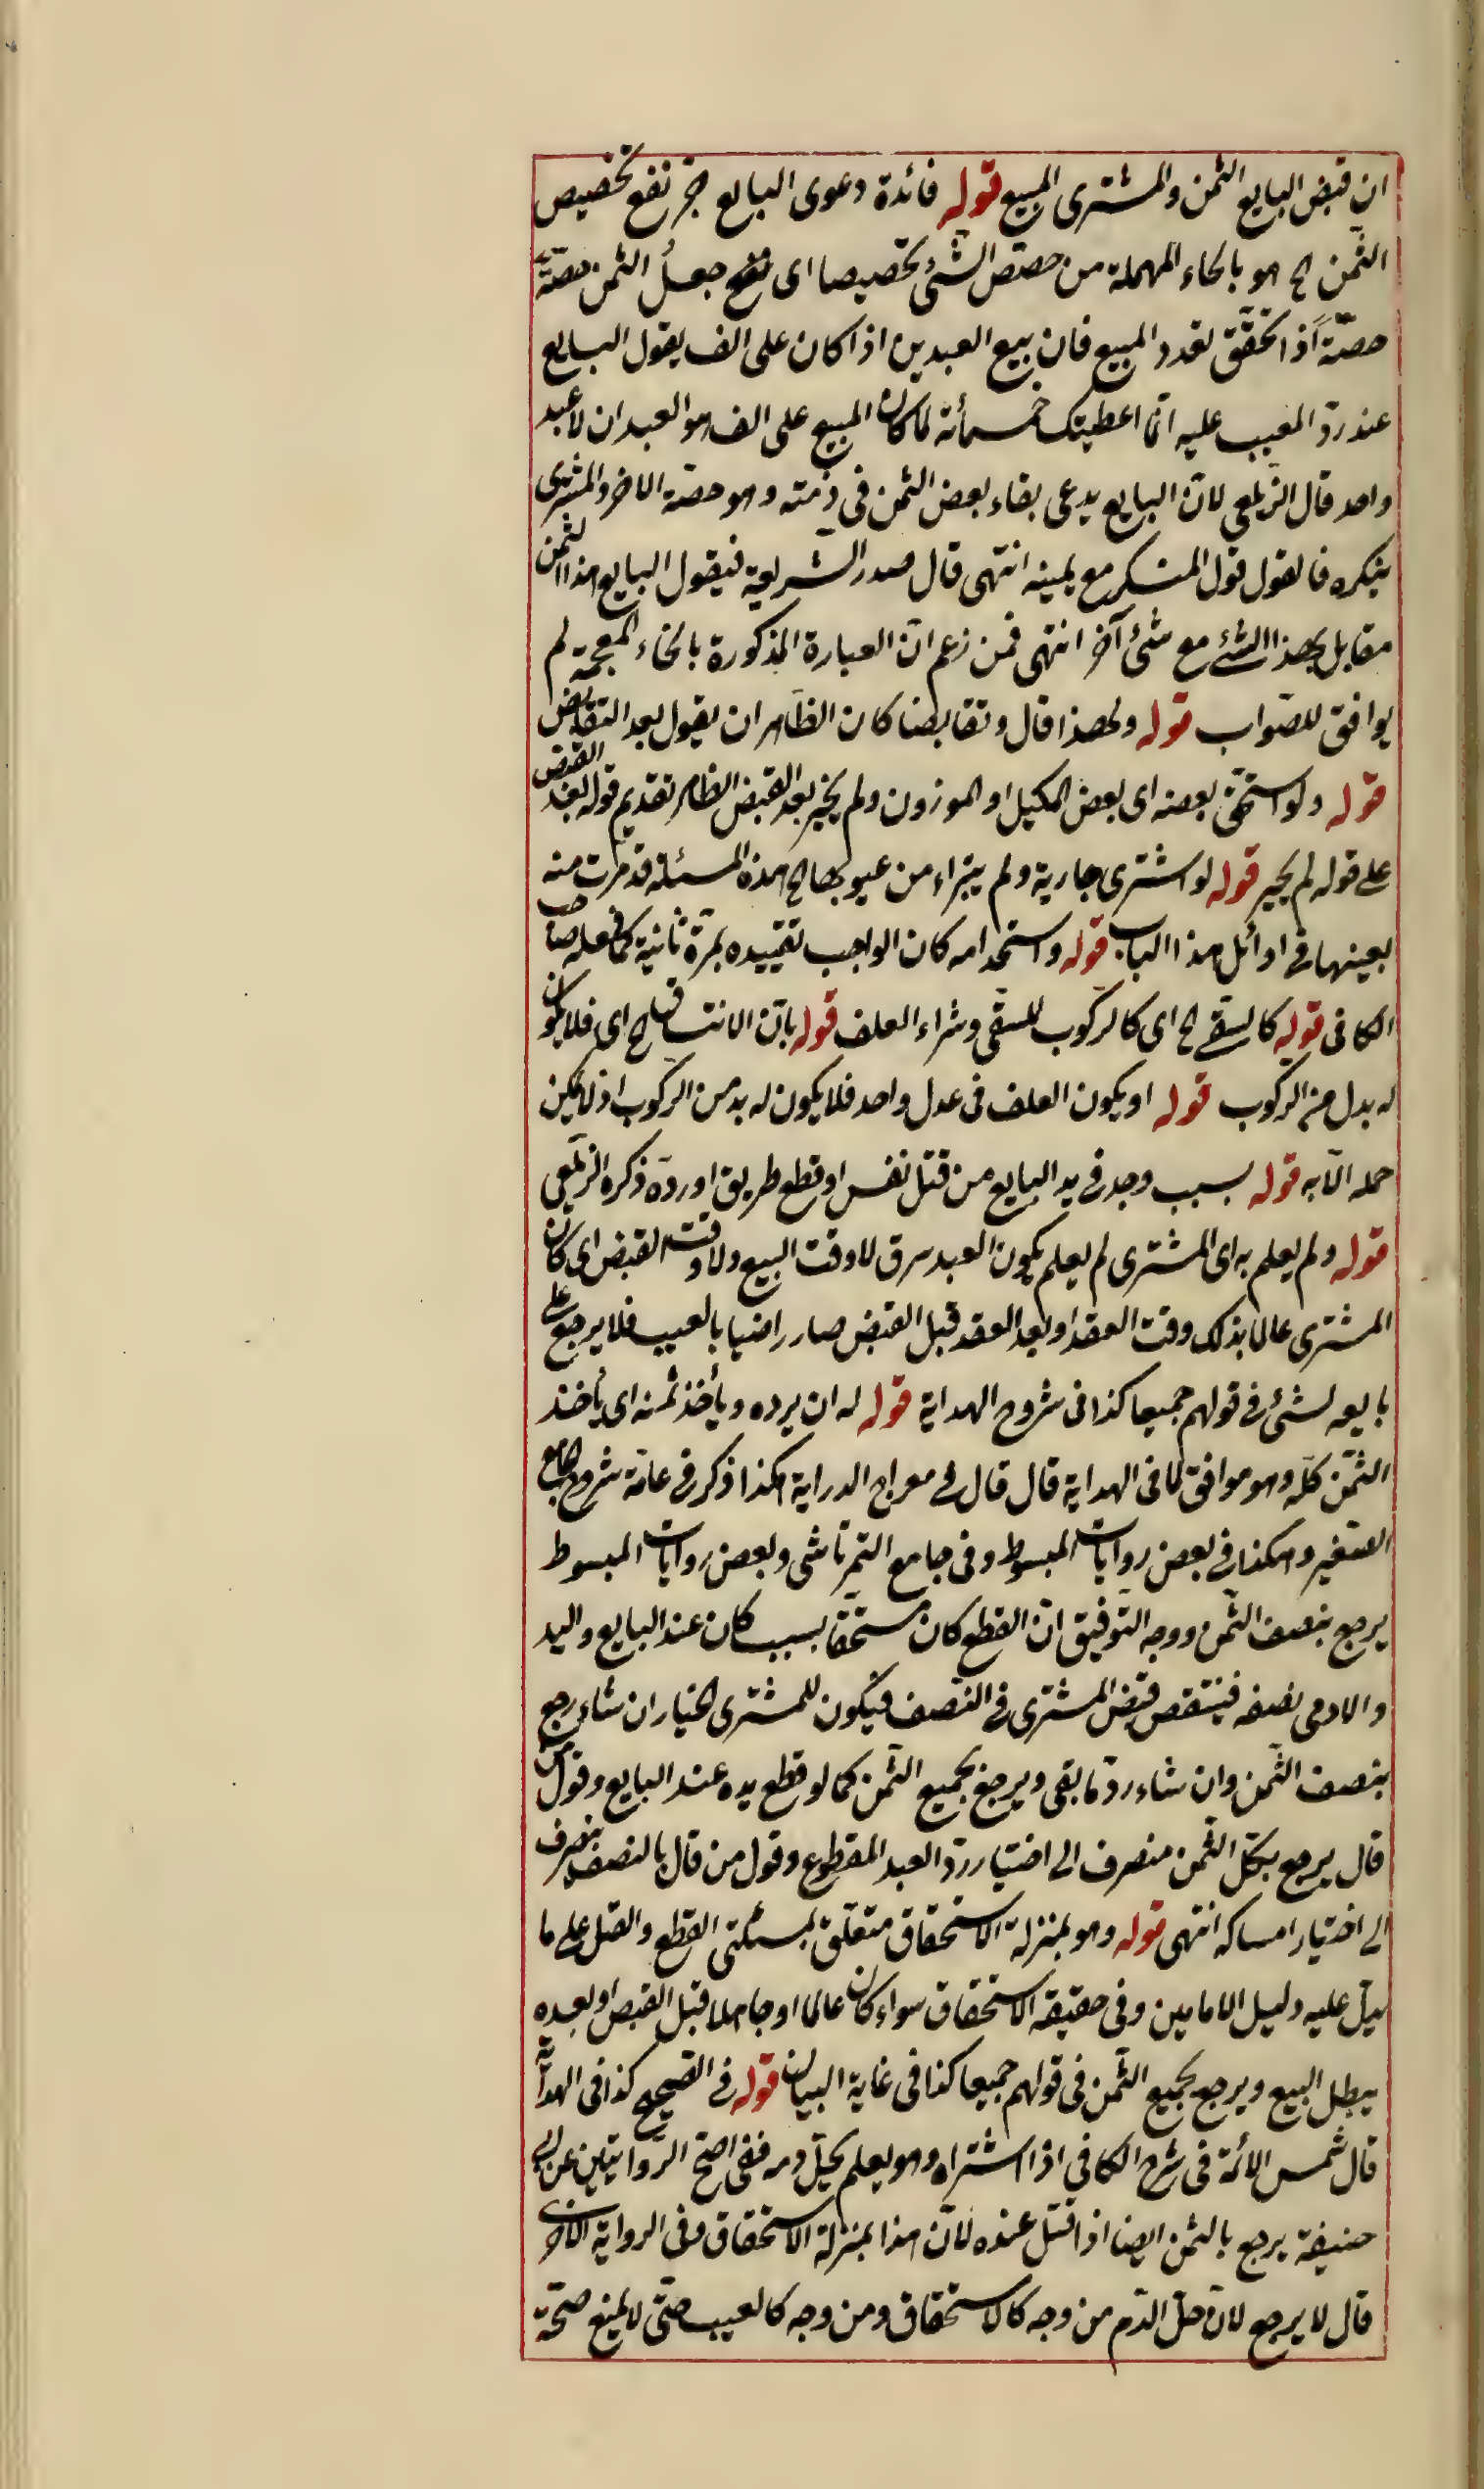 ان قبض البايع الثمن والمشترى المبيع قوله فائدة دعوى البايع جر نفع تحصيص
الثمن الخ هو بالحاء المهملة من حصّص الشئ تحصيصا اى نفع جعل الثمن حصّة
حصّة اذ تحقّق تعدد المبيع فان بيع العبدين اذا كان على الف يقول البايع
عند ردّ المعيب عليه انّما اعطيتك خمسمأئة لما كان المبيع على الف هو العبدان لا عبد
واحد قال الزيلعى لانّ البايع يدعى بقاء بعض الثمن فى ذمته وهو حصّة الاخر والمشترى
ينكره فالقول قول المنكر مع يمينه انتهى قال صدر الشريعة فيقول البايع هذا الثمن
مقابل بهذا الشئ مع شئ آخر انتهى فمن زعم انّ العبارة المذكورة بالخاء المعجمة لم
يوافق للصّواب قوله ولهذا قال وتقابضا كان الظّاهر ان يقول بعد التقابض
قوله ولو استحقّ بعضه اى بعض المكيل او الموزون ولم يخير بعد القبض الظاهر تقديم قوله بعد القبض
على قوله لم يخير قوله لو اشترى جارية ولم يتبراء من عيوبها الخ هذه المسئلة قد مرت منه
بعينها فى اوائل هذا الباب قوله واستخدامه كان الواجب تقييده بمرّة ثانية كما فعله صاحب
الكافى قوله كالسّقى الخ اى كالركوب للسّقى وشراء العلف قوله بانّ الانتساق الخ اى فلا يكون
له بدل من الركوب قوله او يكون العلف فى عدل واحد فلا يكون له بد من الركوب اذ لا يمكن
حمله الّا به قوله بسبب وجد فى يد البايع من قتل نفس او قطع طريق او ردّة ذكره الزيلعى
قوله ولم يعلم به اى المشترى لم يعلم بكون العبد سرق لا وقت البيع ولا وقت القبض اى كان
المشترى عالما بذلك وقت العقد او بعد العقد قبل القبض صار راضيا بالعيب فلا يرجع على
بايعه لشئ فى قولهم جميعا كذا فى شروح الهداية قوله له ان يرده ويأخذ ثمنه اى يأخذ
الثمن كلّه وهو موافق لما فى الهداية قال قال فى معراج الدراية هكذا ذكر فى عامّة شروح الجامع
الصّغير وهكذا فى بعض روايات المبسوط وفى جامع التمرتاشى وبعض روايات المبسوط
يرجع بنصف الثّمن ووجه التّوفيق انّ القطع كان مستحقّا بسبب كان عند البايع واليد
والادمى نصفه فينتقض قبض المشترى فى النّصف فيكون للمشترى الخيار ان شاء رجع
بنصف الثّمن وان شاء ردّ ما بقى ويرجع بجميع الثّمن كما لو قطع يده عند البايع وقول من
قال يرجع بكلّ الثّمن منصرف الى اختيار ردّ العبد المقطوع وقول من قال بالنصف ينصرف
الى اختيار امساكه انتهى قوله وهو بمنزلة الاستحقاق متعلّق بمسئلتى القطع والقتل على ما
يدلّ عليه دليل الامامين وفى حقيقة الاستحقاق سواء كان عالما او جاهلا قبل القبض او بعده
يبطل البيع ويرجع بجميع الثّمن فى قولهم جميعا كذا فى غاية البيان قوله فى الصّحيح كذا فى الهداية
قال شمس الائمّة فى شرح الكافى اذا اشتراه وهو يعلم بحلّ دمه ففى اصحّ الرّوايتين عن ابى
حنيفة يرجع بالثمن ايضا اذا قتل عنده لانّ هذا بمنزلة الاستحقاق وفى الرواية الاخرى
قال لا يرجع لانّ حلّ الدّم من وجه كالاستحقاق ومن وجه كالعيب حتّى لا يمنع صحّة